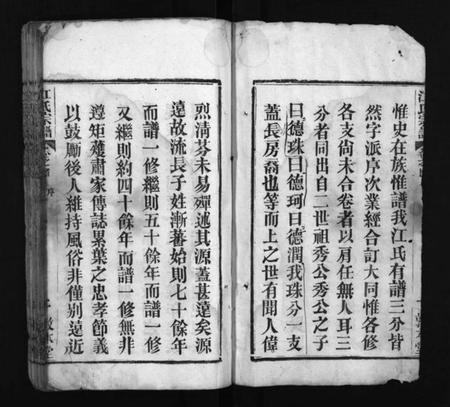 惟史在族惟譜我江氏有譜三分皆
然字派序次業經合訂大同惟各修
各支尚未合卷者以肩任無人耳三
分者同出自二世祖秀公秀公之子
曰德珠曰德珂曰德潤我珠分一支
蓋長房裔也等而上之世有聞人偉
烈清芬未易殫述其源蓋甚遠矣源
遠故流長子姓漸蕃始則七十餘年
而譜一修繼則五十餘年而譜一修
又繼則約四十餘年而譜一修無非
遵矩蘐肅家傳誌累葉之忠孝節義
以鼓勵後人維持風俗非僅別遠近
江氏宗譜